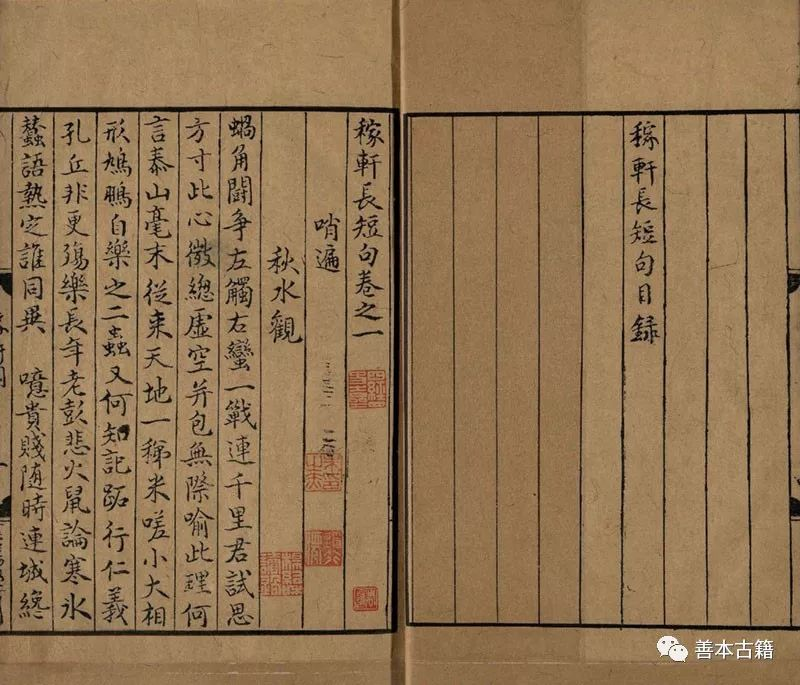 稼軒長短句目録
稼軒長短句卷之一
哨遍
秋水觀
蝸角鬪争左觸右蠻一戰連千里君試思
方寸此心微總虛空并包無際喻此理何
言泰山毫末從来天地一稊米嗟小大相
形鳩鵬自樂之二蟲又何知記跖行仁義
孔丘非更殤樂長年老彭悲火鼠論寒氷
蠶語熱定誰同異 噫貴賤随時連城纔
善本古籍